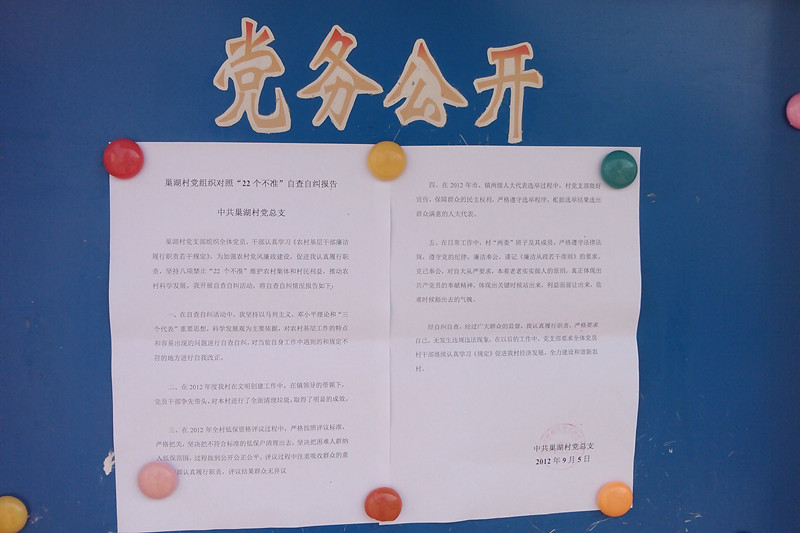 党务公开
巢湖村党组织对照“22 个不准”自查自纠报告
中共巢湖村党总支
巢湖村党支部组织全体党员、干部认真学习《农村基层干部廉洁
履行职责若干规定》，为加强农村党风廉政建设，促进我认真履行职
责，坚持八项禁止“22 个不准”维护农村集体和村民利益，推动农
村科学发展，我开展自查自纠活动，将自查自纠情况报告如下：
一、在自查自纠活动中，我坚持以马列主义、邓小平理论和“三
个代表”重要思想，科学发展观为主要依据，对农村基层工作的特点
和容易出现的问题进行自查自纠，对当前自身工作中遇到的和规定不
符的地方进行自我改正。
二、在 2012 年度我村在文明创建工作中，在镇领导的带领下，
党员干部争先带头，对本村进行了全面清理垃圾，取得了明显的成效。
三、在 2012 年全村低保资格评议过程中，严格按照评议标准，
严格把关，坚决把不符合标准的低保户清理出去，坚决把困难人群纳
入低保范围，过程做到公开公正公平，评议过程中注重吸收群众的意
认真履行职责，评议结果群众无异议
四、在 2012 年市、镇两级人大代表选举过程中，村党支部做好
宣传，保障群众的民主权利，严格遵守选举程序，棍据选举结果选出
群众满意的人大代表。
五、在日常工作中，村“两委”班子及其成员，严格遵守法律法
规，遵守党的纪律，廉洁奉公，谨记《廉洁从政若干准则》的要求，
克己奉公，对自大从严要求，本着老老实实做人的原则，真正体现出
共产党员的奉献精神，体现出关键时候站出来，利益面前让出来，危
难时候豁出去的气魄。
经自纠自查，经过广大群众的监督，按认真履行职责，严格要求
自己，无发生违规违法现象，在以后的工作中，党支部要求全体党员
村干部继续认真学习《规定》促进我村经济发展，全力建设和谐新农
村。
中共巢湖村党总支
2012 年 9 月 5 日